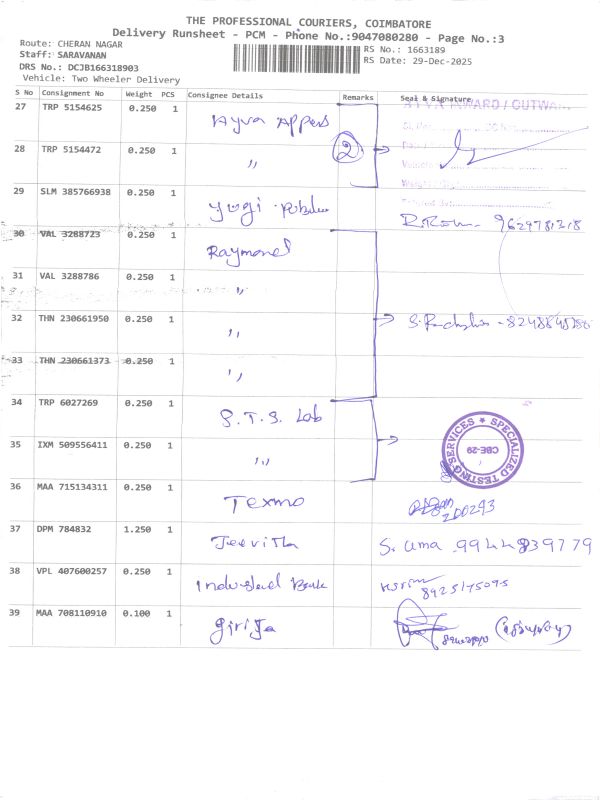 THE PROFESSIONAL COURIERS, COIMBATORE
Delivery Runsheet - PCM - Phone No.:9047080280 - Page No.:3
Route: CHERAN NAGAR
Staff: SARAVANAN
DRS No.: DCJB166318903
Vehicle: Two Wheeler Delivery
RS No.: 1663189
RS Date: 29-Dec-2025
S No Consignment No Weight PCS Consignee Details Remarks Seal & Signature
27 TRP 5154625 0.250 1 Ayva Appers
28 TRP 5154472 0.250 1 ,, 2
29 SLM 385766938 0.250 1 yugi
30 VAL 3288723 0.250 1 Raymond
31 VAL 3288786 0.250 1 ,,
32 THN 230661950 0.250 1 ,,
33 THN 230661373 0.250 1 ,,
34 TRP 6027269 0.250 1 S.T.S. Lab
35 IXM 509556411 0.250 1 ,,
SPECIALIZED TESTING SERVICES
CBE-29
36 MAA 715134311 0.250 1 Texmo
200293
37 DPM 784832 1.250 1 Jeevitha S. Uma
38 VPL 407600257 0.250 1 Indusland Bank
39 MAA 708110910 0.100 1 Girija